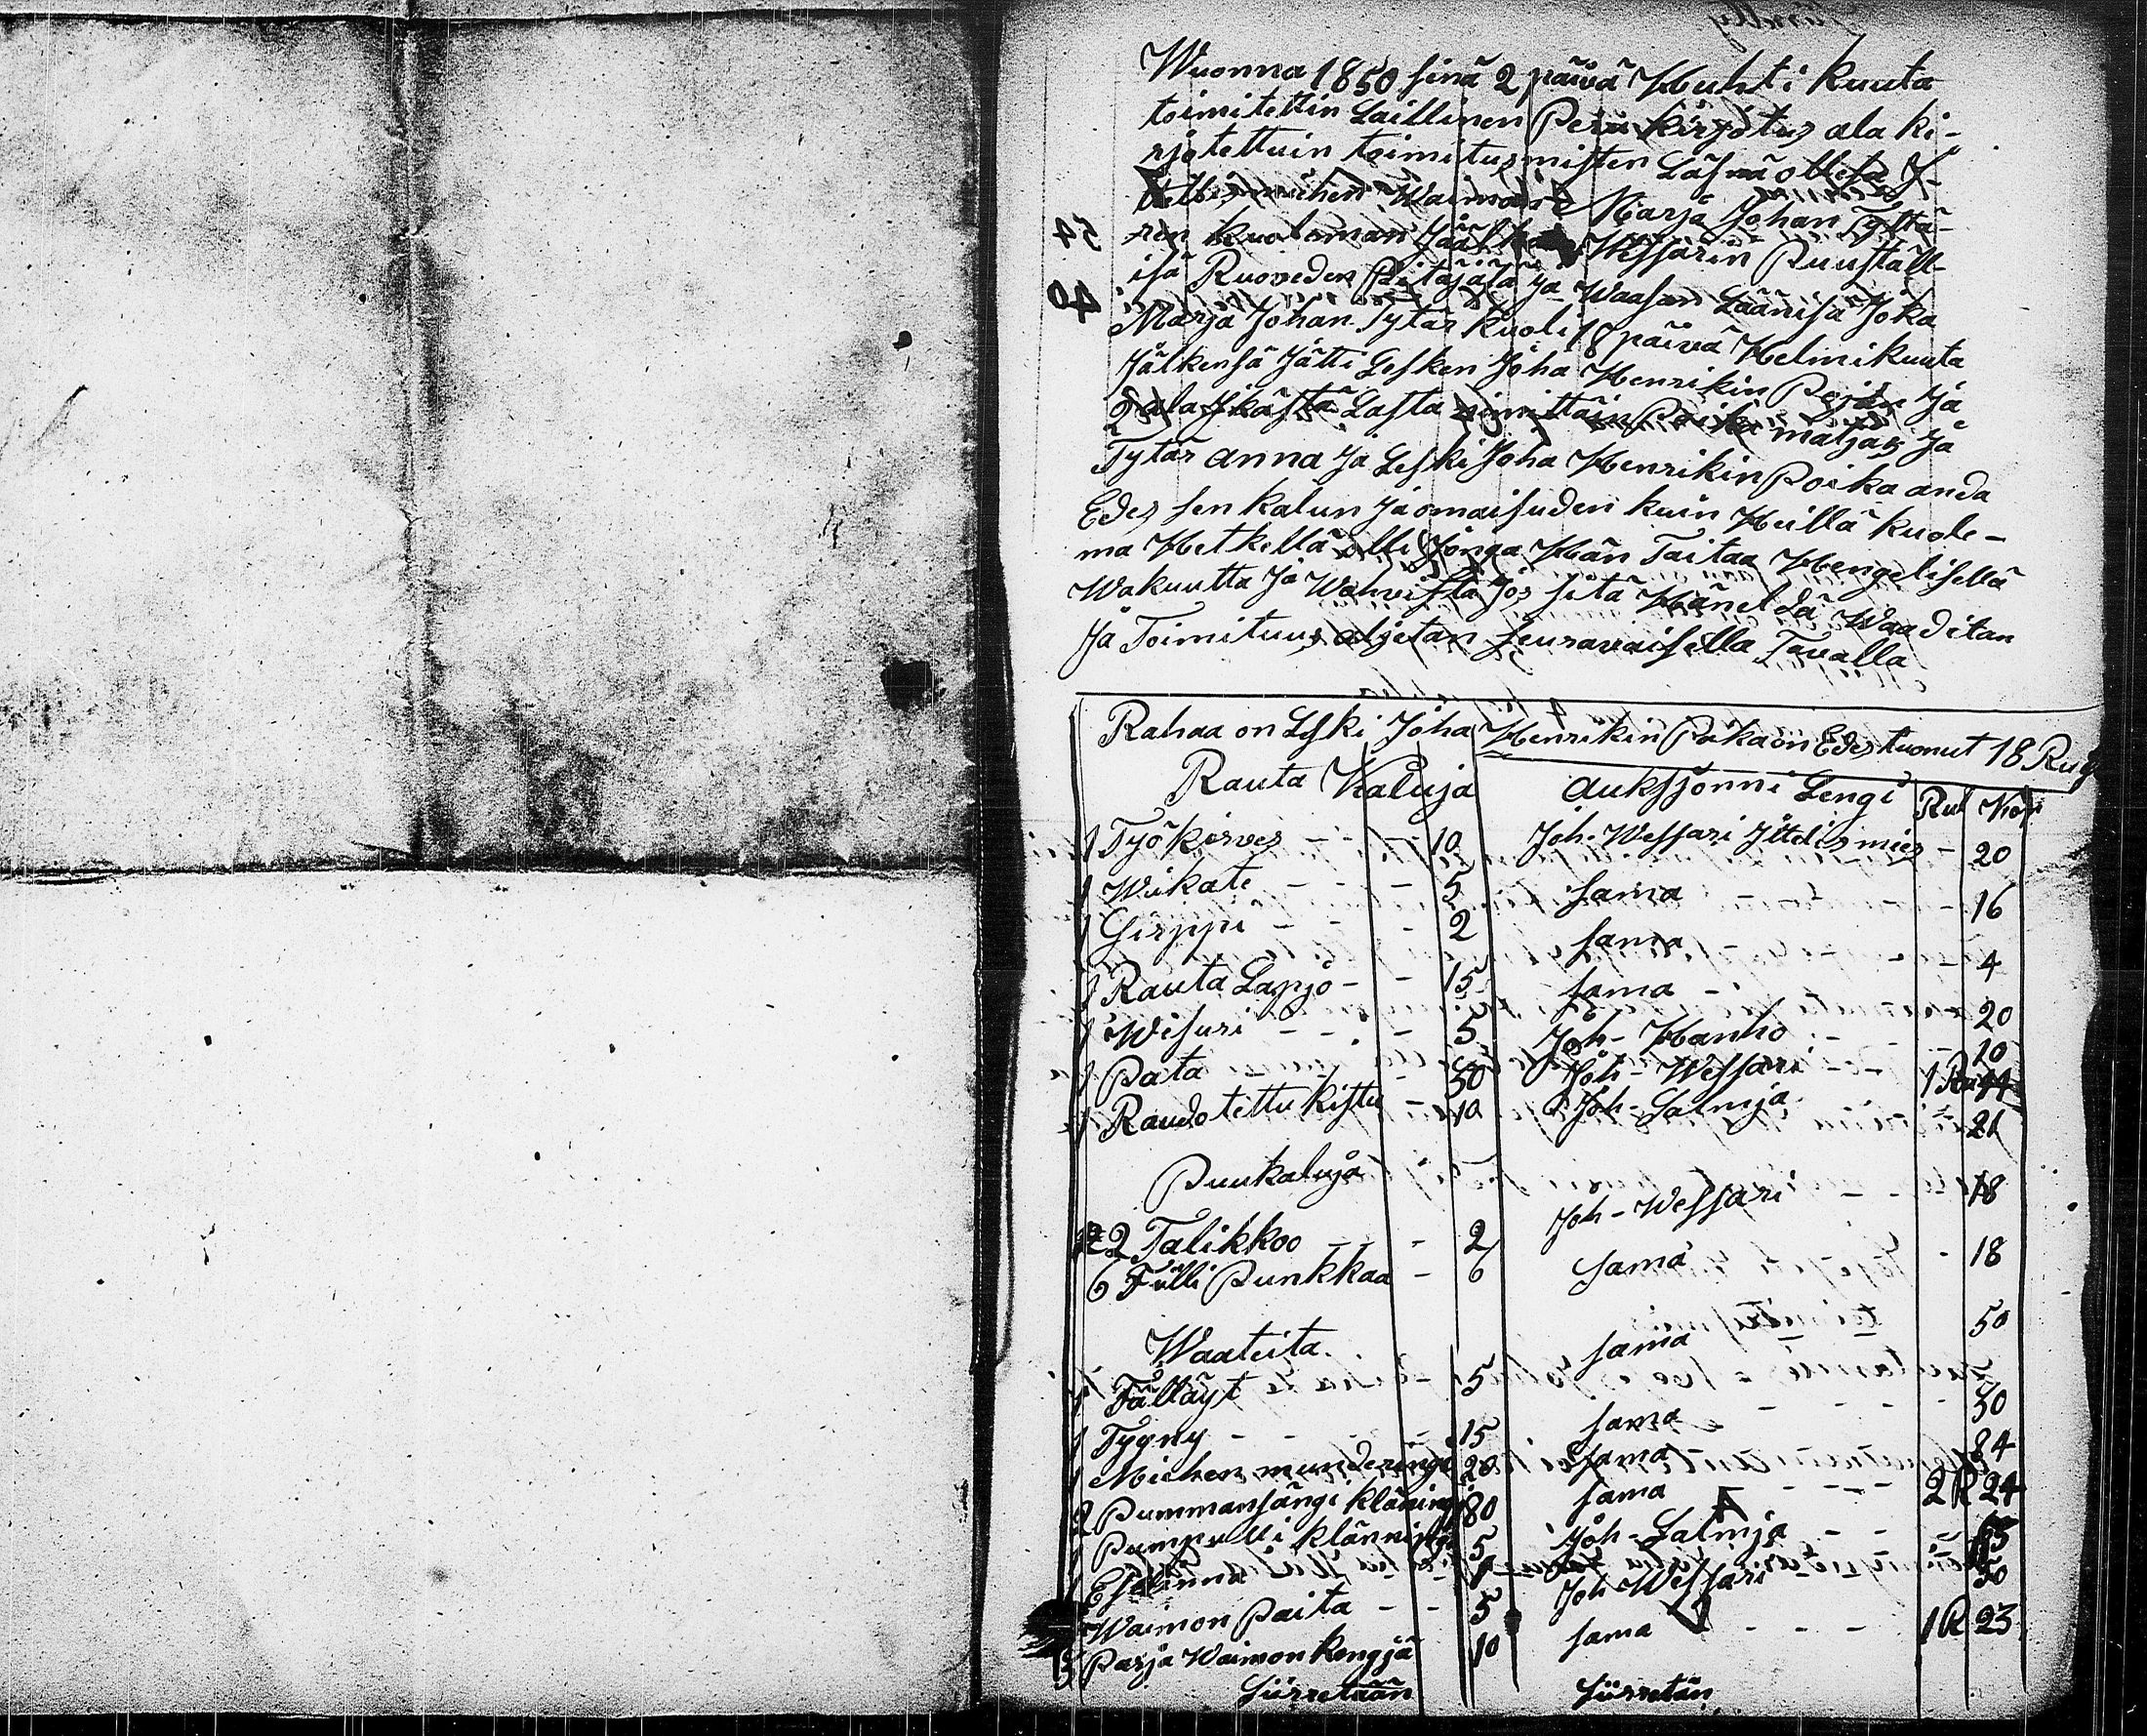 Wuonna 1850 sinä 2 päivä Huhti kuuta
toimitettin Laillinen Peru kirjotus ala ki-
rjotettuin toimitusmisten Läsnä ollesa J-
tellismiehen Waimon Marja Johan Tyttä-
ren kuoleman Jälken Wessarin Ruuställ-
isä Ruoveden Pitäjäsä ja Waasan Läänisä Joka
Marja Johan Tytär kuoli 18 päivä Helmikuuta
Jälkensä Jätti Lesken Joha Henrikin Pojan Ja
2 ala Jkästä Lasta nimittäin Poika matjas Ja
Tytär anna Ja Leski Joha Henrikin Poika anda
Edes sen kalun Ja omaisuden kuin Heillä kuole-
ma Hetkellä olli Jonga Hän Taitaa Hengelisellä
Wakuutta Ja Wahvista Jos sitä Häneldä Waaditan
Ja Toimituus aljetan seuravaisella Tavalla
Rahaa on Leski Joha Henrikin Poika on Edes tuonut 18 Ru
Rauta Kaluja auksjonni Lengi Rul Kop
1 Työ kirves - - - 10 Joh. Wessari Jttelismies - 20
1 Wikate - - - 5 sama 16
1 Sirppi - - 2 sama - 4
1 Rauta Lapjo - - 15 sama - 20
1 Wesuri - - - 5 Joh - Hanho - - 10
1 Pata - - 50 Joh - Wessari 1 Ru 44
1 Raudotettu kistu - 10 Joh - Salmja 21
Puukaluja
2 Talikkoo - - 2 Joh - Wessari 18
6 Fiilli Punkkaa - 6 sama - 18
Waateita
1 Fälläyt 5 sama 50
1 Tygny - - - 15 sama - - - 50
1 Miehen munderingi 20 sama 84
2 Pummansängi kläningi 80 sama - - - 2 R 24
1 Pumpulli klänningi 5 Joh - Salmja - - 65
1 Esilinna 1 Joh Wessari 50
Waimon Paita - - 5 sama - - - 1 R 23
3 Parja Waimon kengjä 10
Siirretään Siirretän
54
40